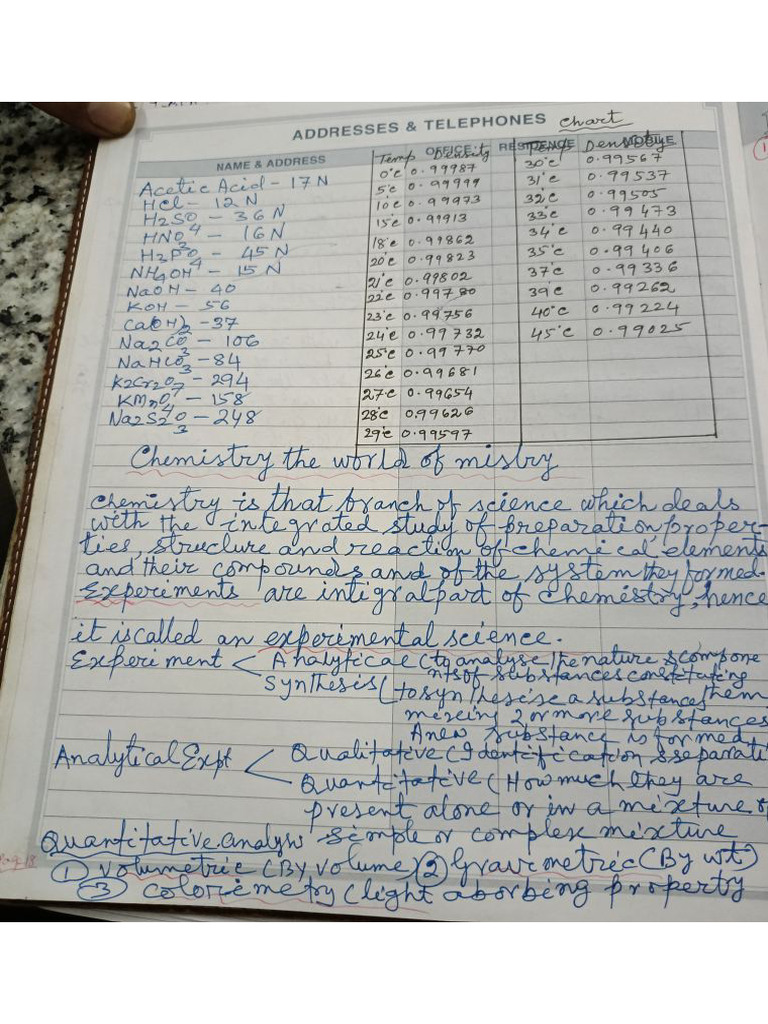 ADDRESSES & TELEPHONES chart
NAME & ADDRESS
OFFICE
RESIDENCE
MOBILE
Acetic Acid - 17 N
HCl - 12 N
H2SO4 - 36 N
HNO3 - 16 N
H3PO4 - 45 N
NH4OH - 15 N
NaOH - 40
KOH - 56
Ca(OH)2 - 37
Na2CO3 - 106
NaHCO3 - 84
K2Cr2O7 - 294
KMnO4 - 158
Na2S2O3 - 248
Temp Density
0°c 0.99987
5°c 0.99999
10°c 0.99973
15°c 0.99913
18°c 0.99862
20°c 0.99823
21°c 0.99802
22°c 0.99780
23°c 0.99756
24°c 0.99732
25°c 0.99770
26°c 0.99681
27°c 0.99654
28°c 0.99626
29°c 0.99597
Temp Density
30°c 0.99567
31°c 0.99537
32°c 0.99505
33°c 0.99473
34°c 0.99440
35°c 0.99406
37°c 0.99336
39°c 0.99262
40°c 0.99224
45°c 0.99025
Chemistry the world of mistry
Chemistry is that branch of science which deals
with the integrated study of preparation, proper-
ties, structure and reaction of chemical elements
and their compounds and of the system they formed.
Experiments are integral part of chemistry, hence
it is called an experimental science.
Experiment < Analytical (to analyse the nature & compone
nts of substances constituting
Synthesis (to synthesise a substances them
mixing 2 or more substances
A new substance is formed
Analytical Expt < Qualitative (Identification & separati
Quantitative (How much they are
present alone or in a mixture of
Quantitative analysis simple or complex mixture
Pag 18
① Volumetric (By volume) ② Gravimetric (By wt)
③ Colorimetry (light aborbing property